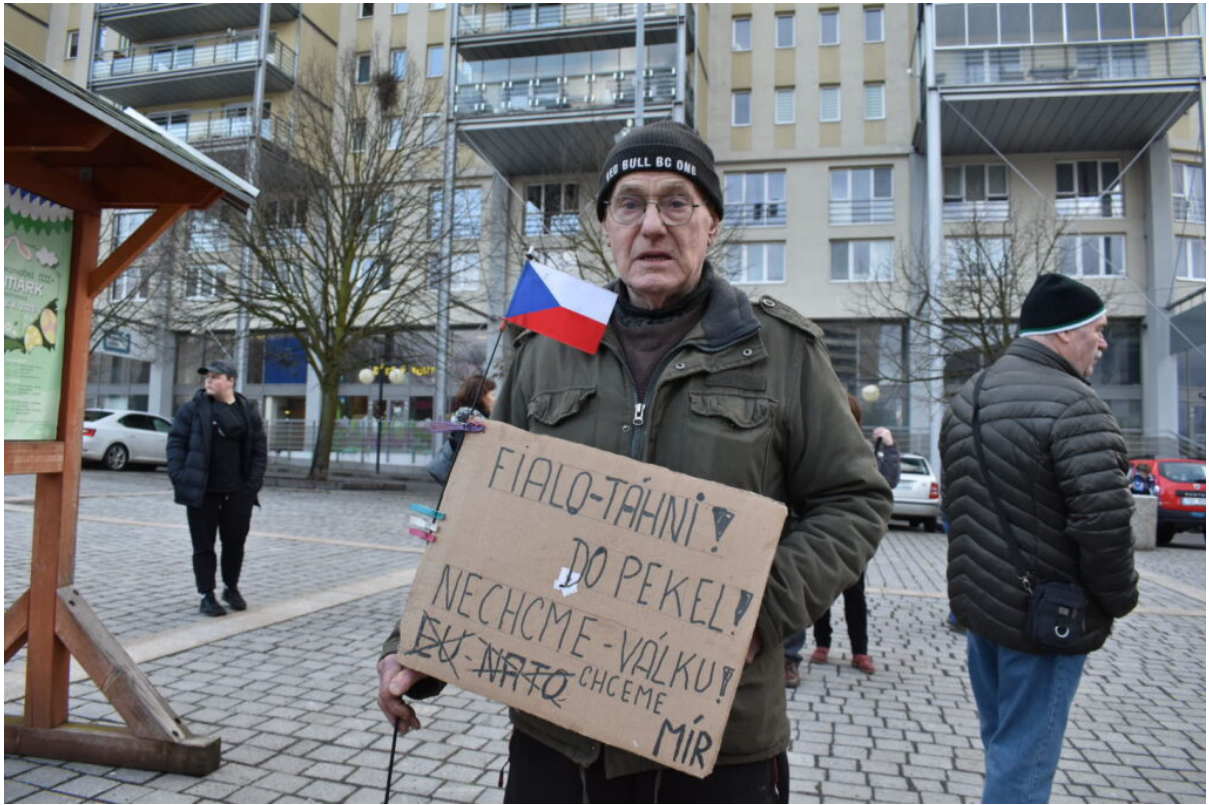 RED BULL BC ONE
MARK
FIALO-TÁHNI!
DO PEKEL!
NECHCME-VÁLKU!
EU-NATO CHCEME
MÍR